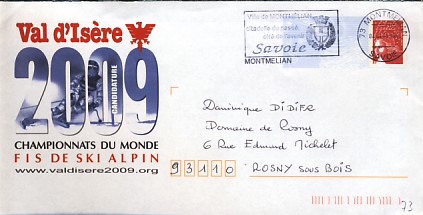 Val d'Isère
2009
CANDIDATURE
CHAMPIONNATS DU MONDE
FIS DE SKI ALPIN
www.valdisere2009.org
Ville de MONTMÉLIAN
citadelle du passé,
cité de l'avenir
Savoie
MONTMELIAN
73 MONTMELIAN
SAVOIE
Dominique DIDIER
Domaine de Rosny
6 Rue Edmund Michelet
93110 ROSNY sous BOIS
73